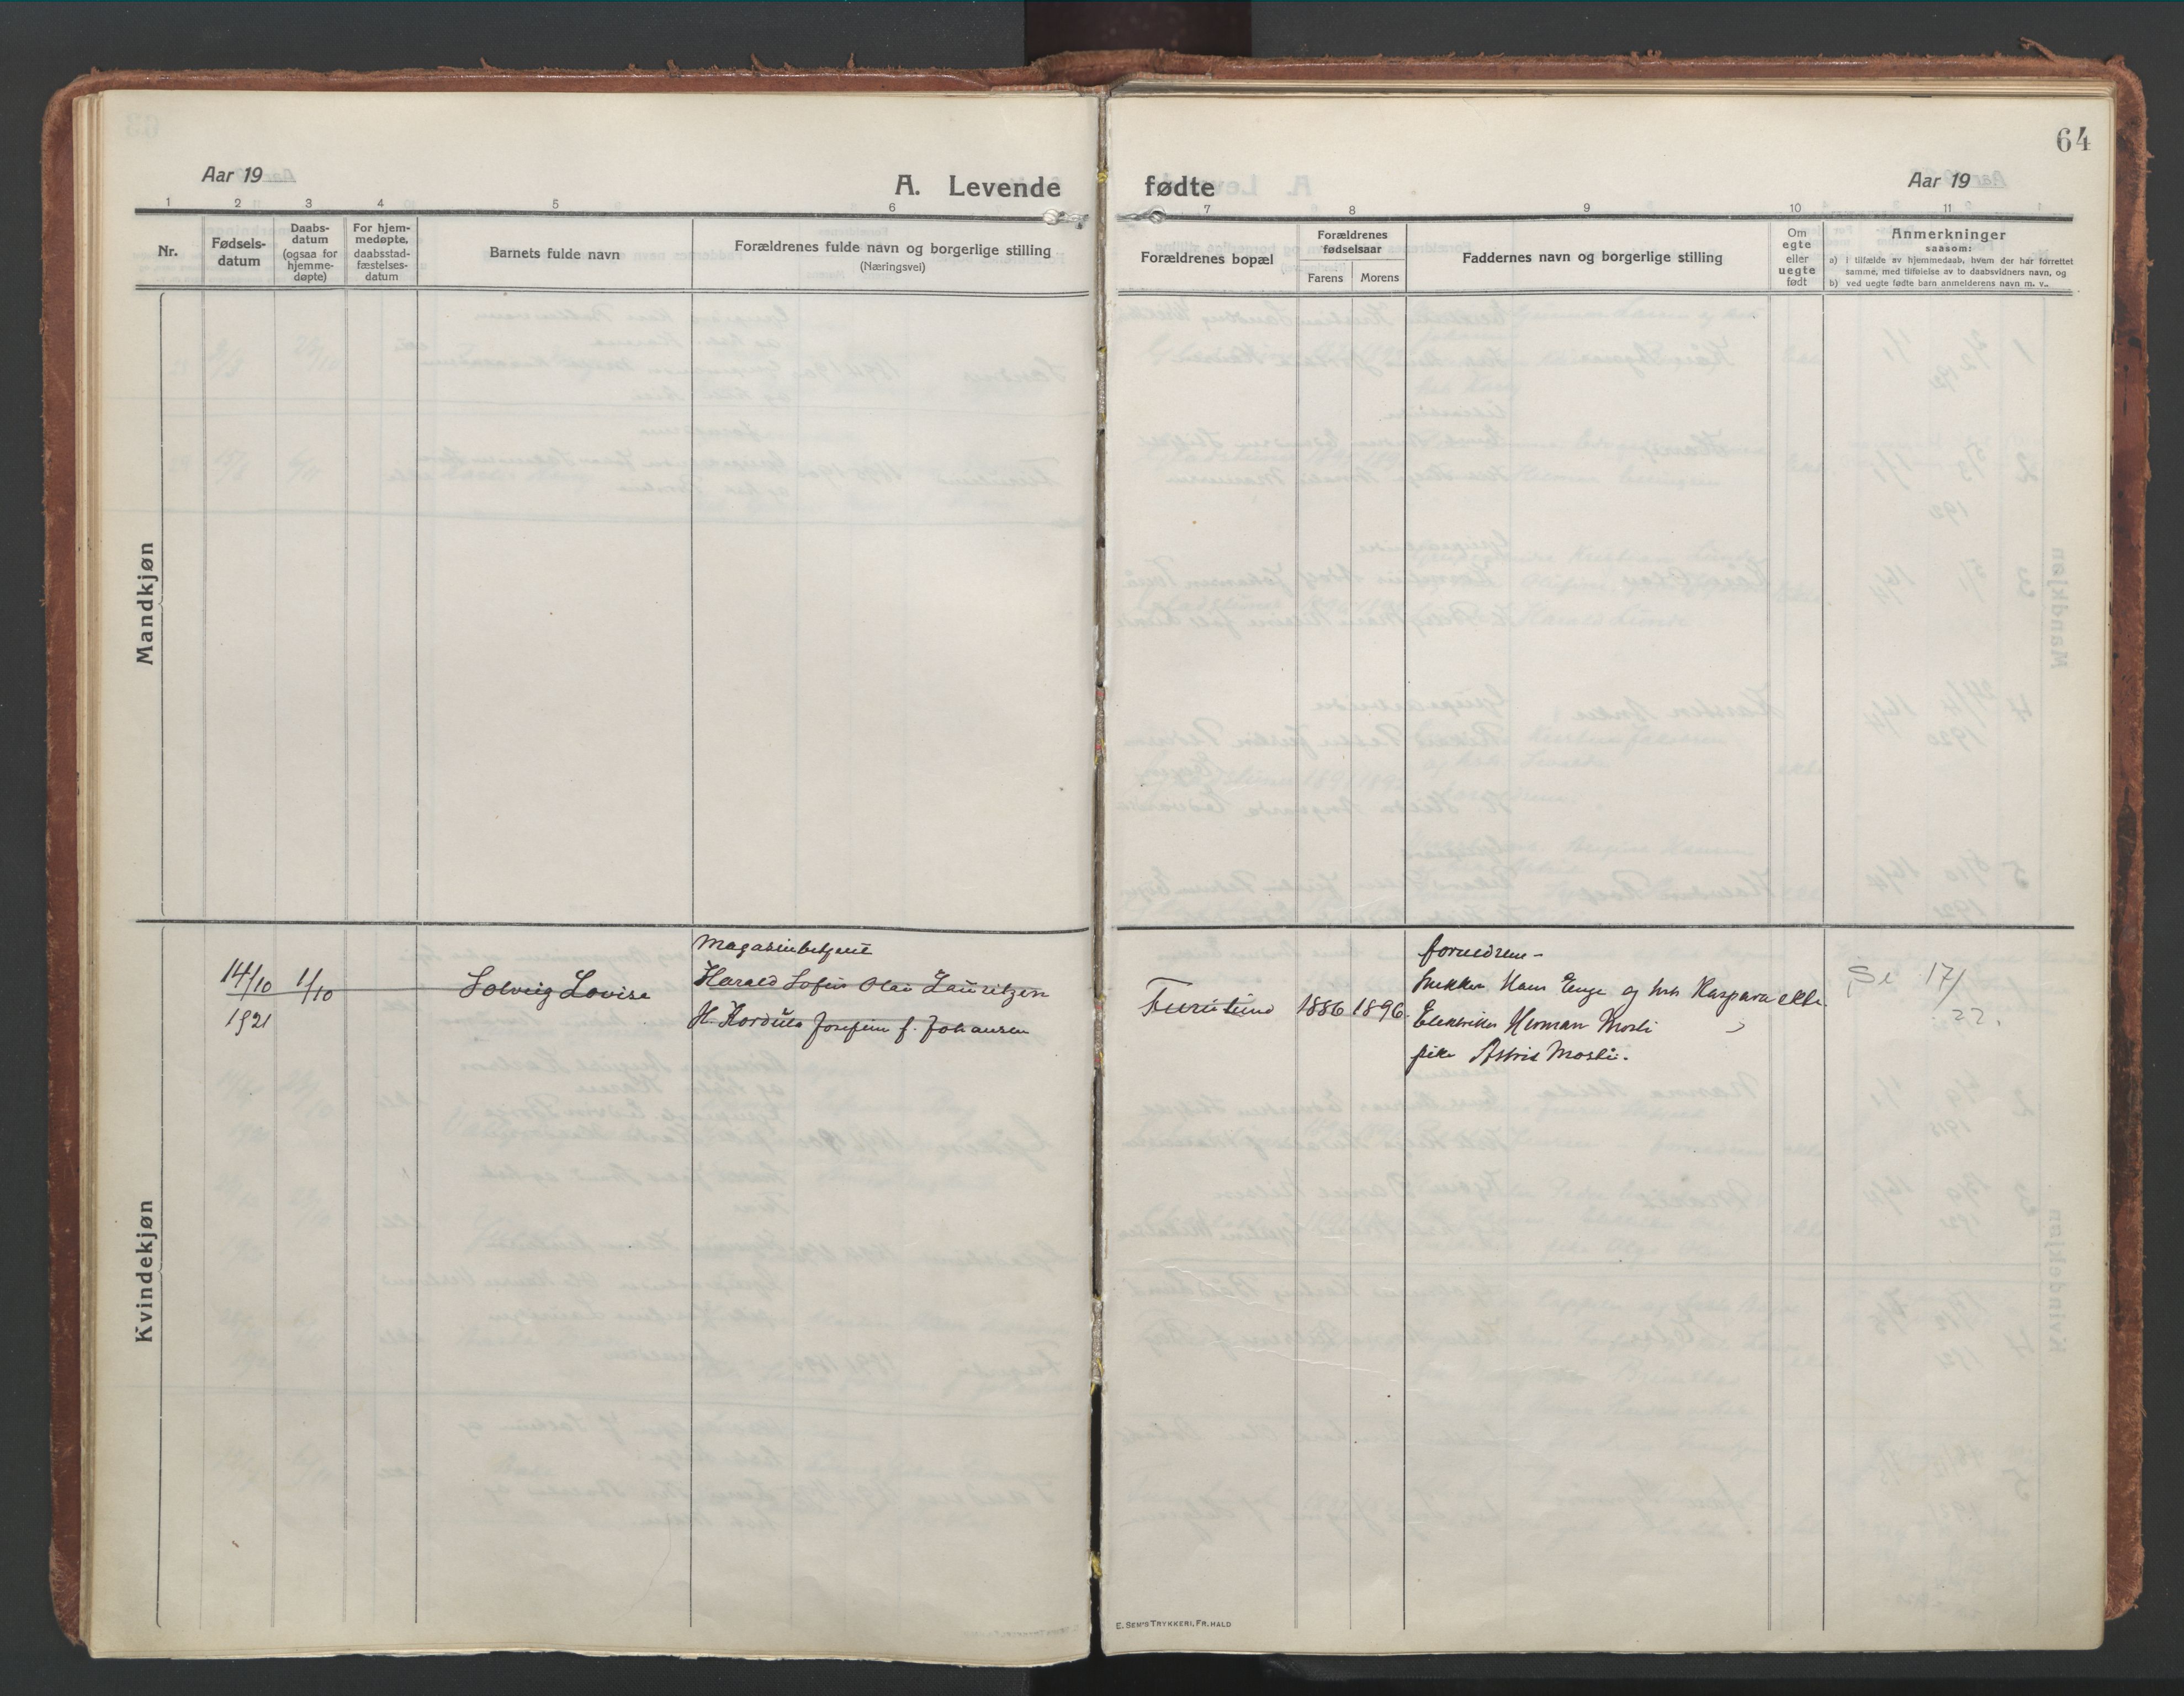 64
Aar 19
A. Levende fødte
Aar 19
1 2 3 4 5 6 7 8 9 10 11
Nr.
Fødsels-
datum
Daabs-
datum
(ogsaa for
hjemme-
døpte)
For hjem-
medøpte,
daabsstad-
fæstelses-
datum
Barnets fulde navn
Forældrenes fulde navn og borgerlige stilling
(Næringsvei)
Forældrenes bopæl
Forældrenes
fødselsaar
Farens Morens
Faddernes navn og borgerlige stilling
Om
egte
eller
uegte
født
Anmerkninger
saasom:
a) i tilfælde av hjemmedaab, hvem der har forrettet
samme, med tilføielse av to daabsvidners navn, og
b) ved uegte fødte barn anmelderens navn m. v..
Mandkjøn
Kvindekjøn
14/10
1921
1/10
Solveig Lovise
Magasinbetjent
Harald Sofus Olai Lauritzen
H. Kordula Josefine f. Johansen
1886 1896.
forældrene -
Snekker Hans Enge og hst Kaspara
Elektriker Herman Mosli
pike Astrid Mosli.
ekte.
Se 17/
22.
E. SEM'S TRYKKERI, FR.HALD